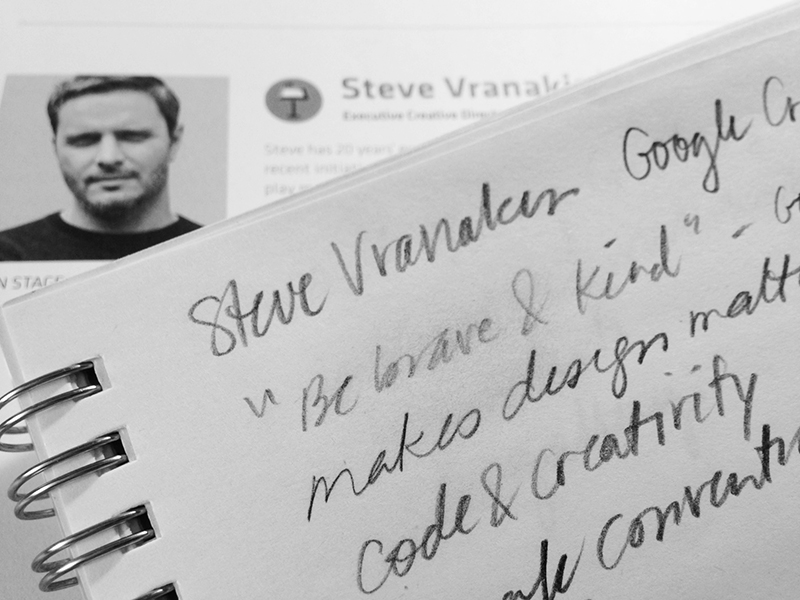 Steve Vranaki
Executive Creative Direc
Steve has 20 years'
recent initiati
play
N STAGE
Steve Vranakis Google Cr
"Be brave & kind" -
makes design matt
code & creativity
conventi